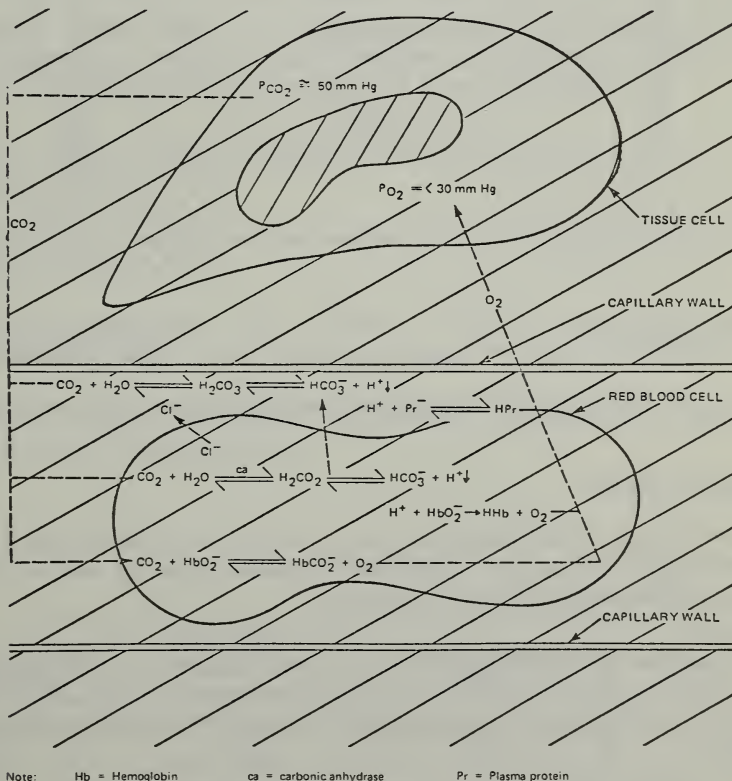 PCO2 ≅ 50 mm Hg
PO2 = < 30 mm Hg
TISSUE CELL
CO2
O2
CAPILLARY WALL
CO2 + H2O ⇌ H2CO3 ⇌ HCO3− + H+↓
H+ + Pr− ⇌ HPr
RED BLOOD CELL
Cl−
Cl−
CO2 + H2O ca ⇌ H2CO2 ⇌ HCO3− + H+↓
H+ + HbO2− → HHb + O2
CO2 + HbO2− ⇌ HbCO2− + O2
CAPILLARY WALL
Note: Hb = Hemoglobin ca = carbonic anhydrase Pr = Plasma protein